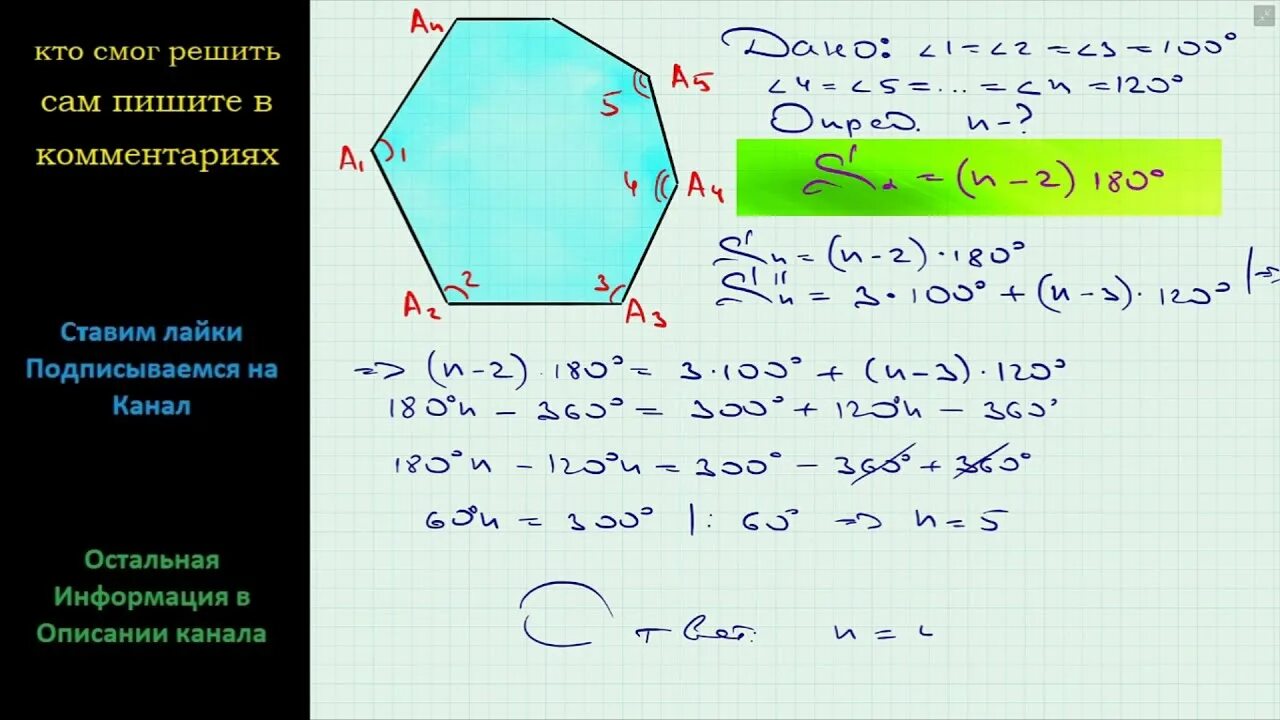 кто смог решить
сам пишите в
комментариях
Ставим лайки
Подписываемся на
Канал
Остальная
Информация в
Описании канала
Aн
A1 1
A2 2
3 A3
4 A4
5 A5
Дано: ∠1=∠2=∠3=100°
∠4=∠5=...=∠n=120°
Опред. n-?
= (n-2) 180°
n = (n-2)·180°
n = 3·100° + (n-3)·120° | =>
=> (n-2)·180° = 3·100° + (n-3)·120°
180°n - 360° = 300° + 120°n - 360°
180°n - 120°n = 300° - 360° + 360°
60°n = 300° |: 60° => n = 5
Ответ: n =